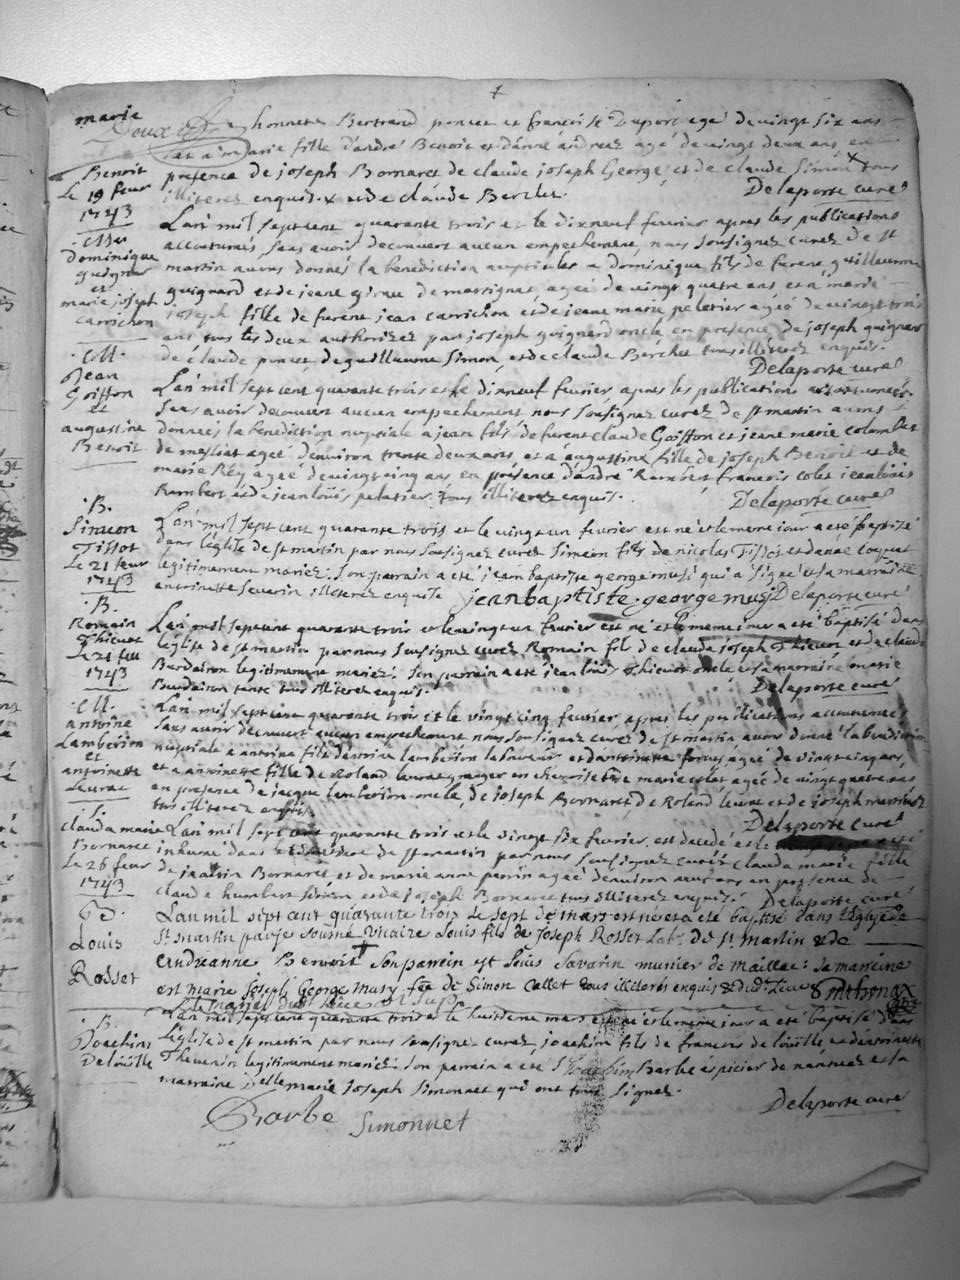 marie
honnete Bertrand poncet et françoise Duport agé de vingt six ans
et a marie fille d'andré Benoit et d'anne andrea agé de vingt deux ans en
Benoit
Le 19 feur
1743
présence de joseph Bornaret de claude joseph George et de claude Simon x tous
illiterez enquis. x et de claude Berclet. Delaporte curé
C.M.
Dominique
guignard
et
marie joseph
carrichon
L'an mil sept cent quarante trois et le dixneuf fevrier apres les publications
accoutumés, sans avoir decouvert aucun empechement, nous soussignez curez de st
martin avons donnés la benediction nuptiales a dominique fils de furent guillaume
guignard et de jeane de massignat ageé de vingt quatre ans et a marie
joseph fille de furent jean carrichon et de jeane marie peletier ageé de vingt trois
ans tous les deux authorisez par joseph guignard oncle en présence de joseph guignard
de claude poncet, de guillaume Simon, et de claude Berclet tous illiterez enquis.
Delaporte curé
C.M.
Jean
Goiffon
et
augustine
Benoit
L'an mil sept cent quarante trois et le dixneuf fevrier, apres les publications accoutumés
sans avoir decouvert aucun empechement nous soussignez curez de st martin avons
donnés la benediction nuptiale a jean fils de furent claude Goiffon et jeane marie colombet
de agee d'environ trente deux ans et a augustine fille de joseph Benoit et de
marie Rey ageé de vingt cinq ans en présence d'andré Rambert françois colet jean louis
Rambert, et de jean loüis peletier. tous illiterez enquis. Delaporte curé
B.
Simeon
Tissot
Le 21 feur
1743
L'an mil sept cent quarante trois et le vingt un fevrier est né et le meme jour a eté baptisé
dans l'église de st martin par nous soussignez curez Simeon fils de nicolas Tissot et d'anne
legitimement mariez. Son parrain a eté jean baptiste george musi qui a signé et sa marraine
antoinette Severin illiterez enquise jean baptiste george musy Delaporte curé
B.
Romain
Thieuet
Le 21 feu
1743
L'an mil sept cent quarante trois et le vingt un fevrier est né et le meme jour a eté baptisé dans
l'église de st martin par nous soussignez curez Romain fils de claude joseph Thieuet et de claude
Burdairon legitimement mariez. Son parrain a eté jean loüis Thieuet oncle et sa marraine marie
Burdairon tante tous illiterez enquis. Delaporte curé
C.M.
antoine
Lamberion
et
antoinette
Leurat
L'an mil sept cent quarante trois et le vingt cinq fevrier apres les publications accoutumés
sans avoir decouvert aucun empechement nous soussignez curez de st martin avons donné la benediction
nuptiale a antoine fils d'antoine lamberion laboureur et d'antoinette agé de vingt cinq ans,
et a antoinette fille de Roland leurat granger en et de marie colet ageé de vingt quatre ans
en présence de jacque lamberion oncle, de joseph Bornaret, de Roland leurat et de joseph
tous illiterez enquis. Delaporte curé
S.
Clauda marie
Bornaret
Le 26 feur
1743
L'an mil sept cent quarante trois et le vingt six fevrier est decedé et le
inhumé dans le cimetiere de st martin par nous soussignez curez Clauda marie fille
de Bornaret et de marie anne perrin ageé d'environ neuf ans en présence de
claude humbert et de joseph Bornaret tous illiterez enquis. Delaporte curé
B.
Louis
Rosset
L'an mil sept cent quarante trois le sept de mars est né et a eté baptisé dans l'Eglise de
St martin par je soussigné vicaire Louis fils de Joseph Rosset Lab. de st martin & de
Andréanne Benoit Son parrein est Louis Savarin munier de maillac. Sa mareine
est marie Joseph George Musy fée de Simon Callet tous illiterés enquis
B.
Joachim
Deloüille
L'an mil sept cent quarante trois et le huitieme mars est né et le meme jour a eté baptisé dans
l'église de st martin par nous soussignez curez, joachim fils de francois de loüille et d'antoinette
Thevenin legitimement mariez. Son parrain a eté Sr Joachim Barbe épicier de nantuez et sa
marraine Delle marie Joseph Simonnet qui ont tous signez.
Barbe Simonnet Delaporte curé